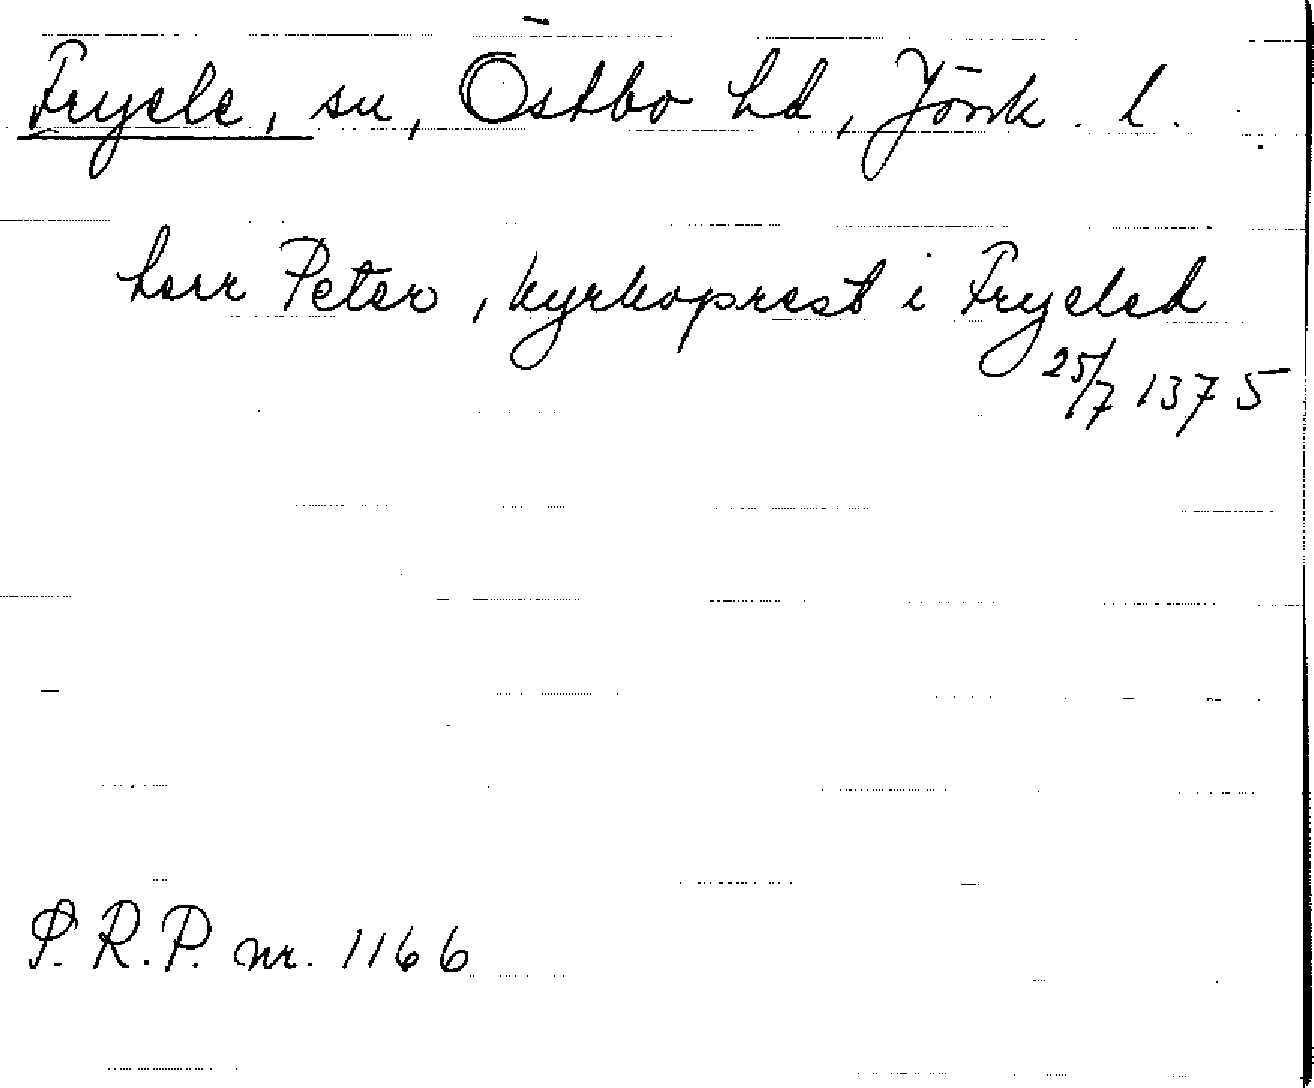 Fryele, sn, Östbo hd, Jönk. l.
herr Peter, kyrkoprest i Fryeled
25/7 1375
P. R. P. nr. 1166